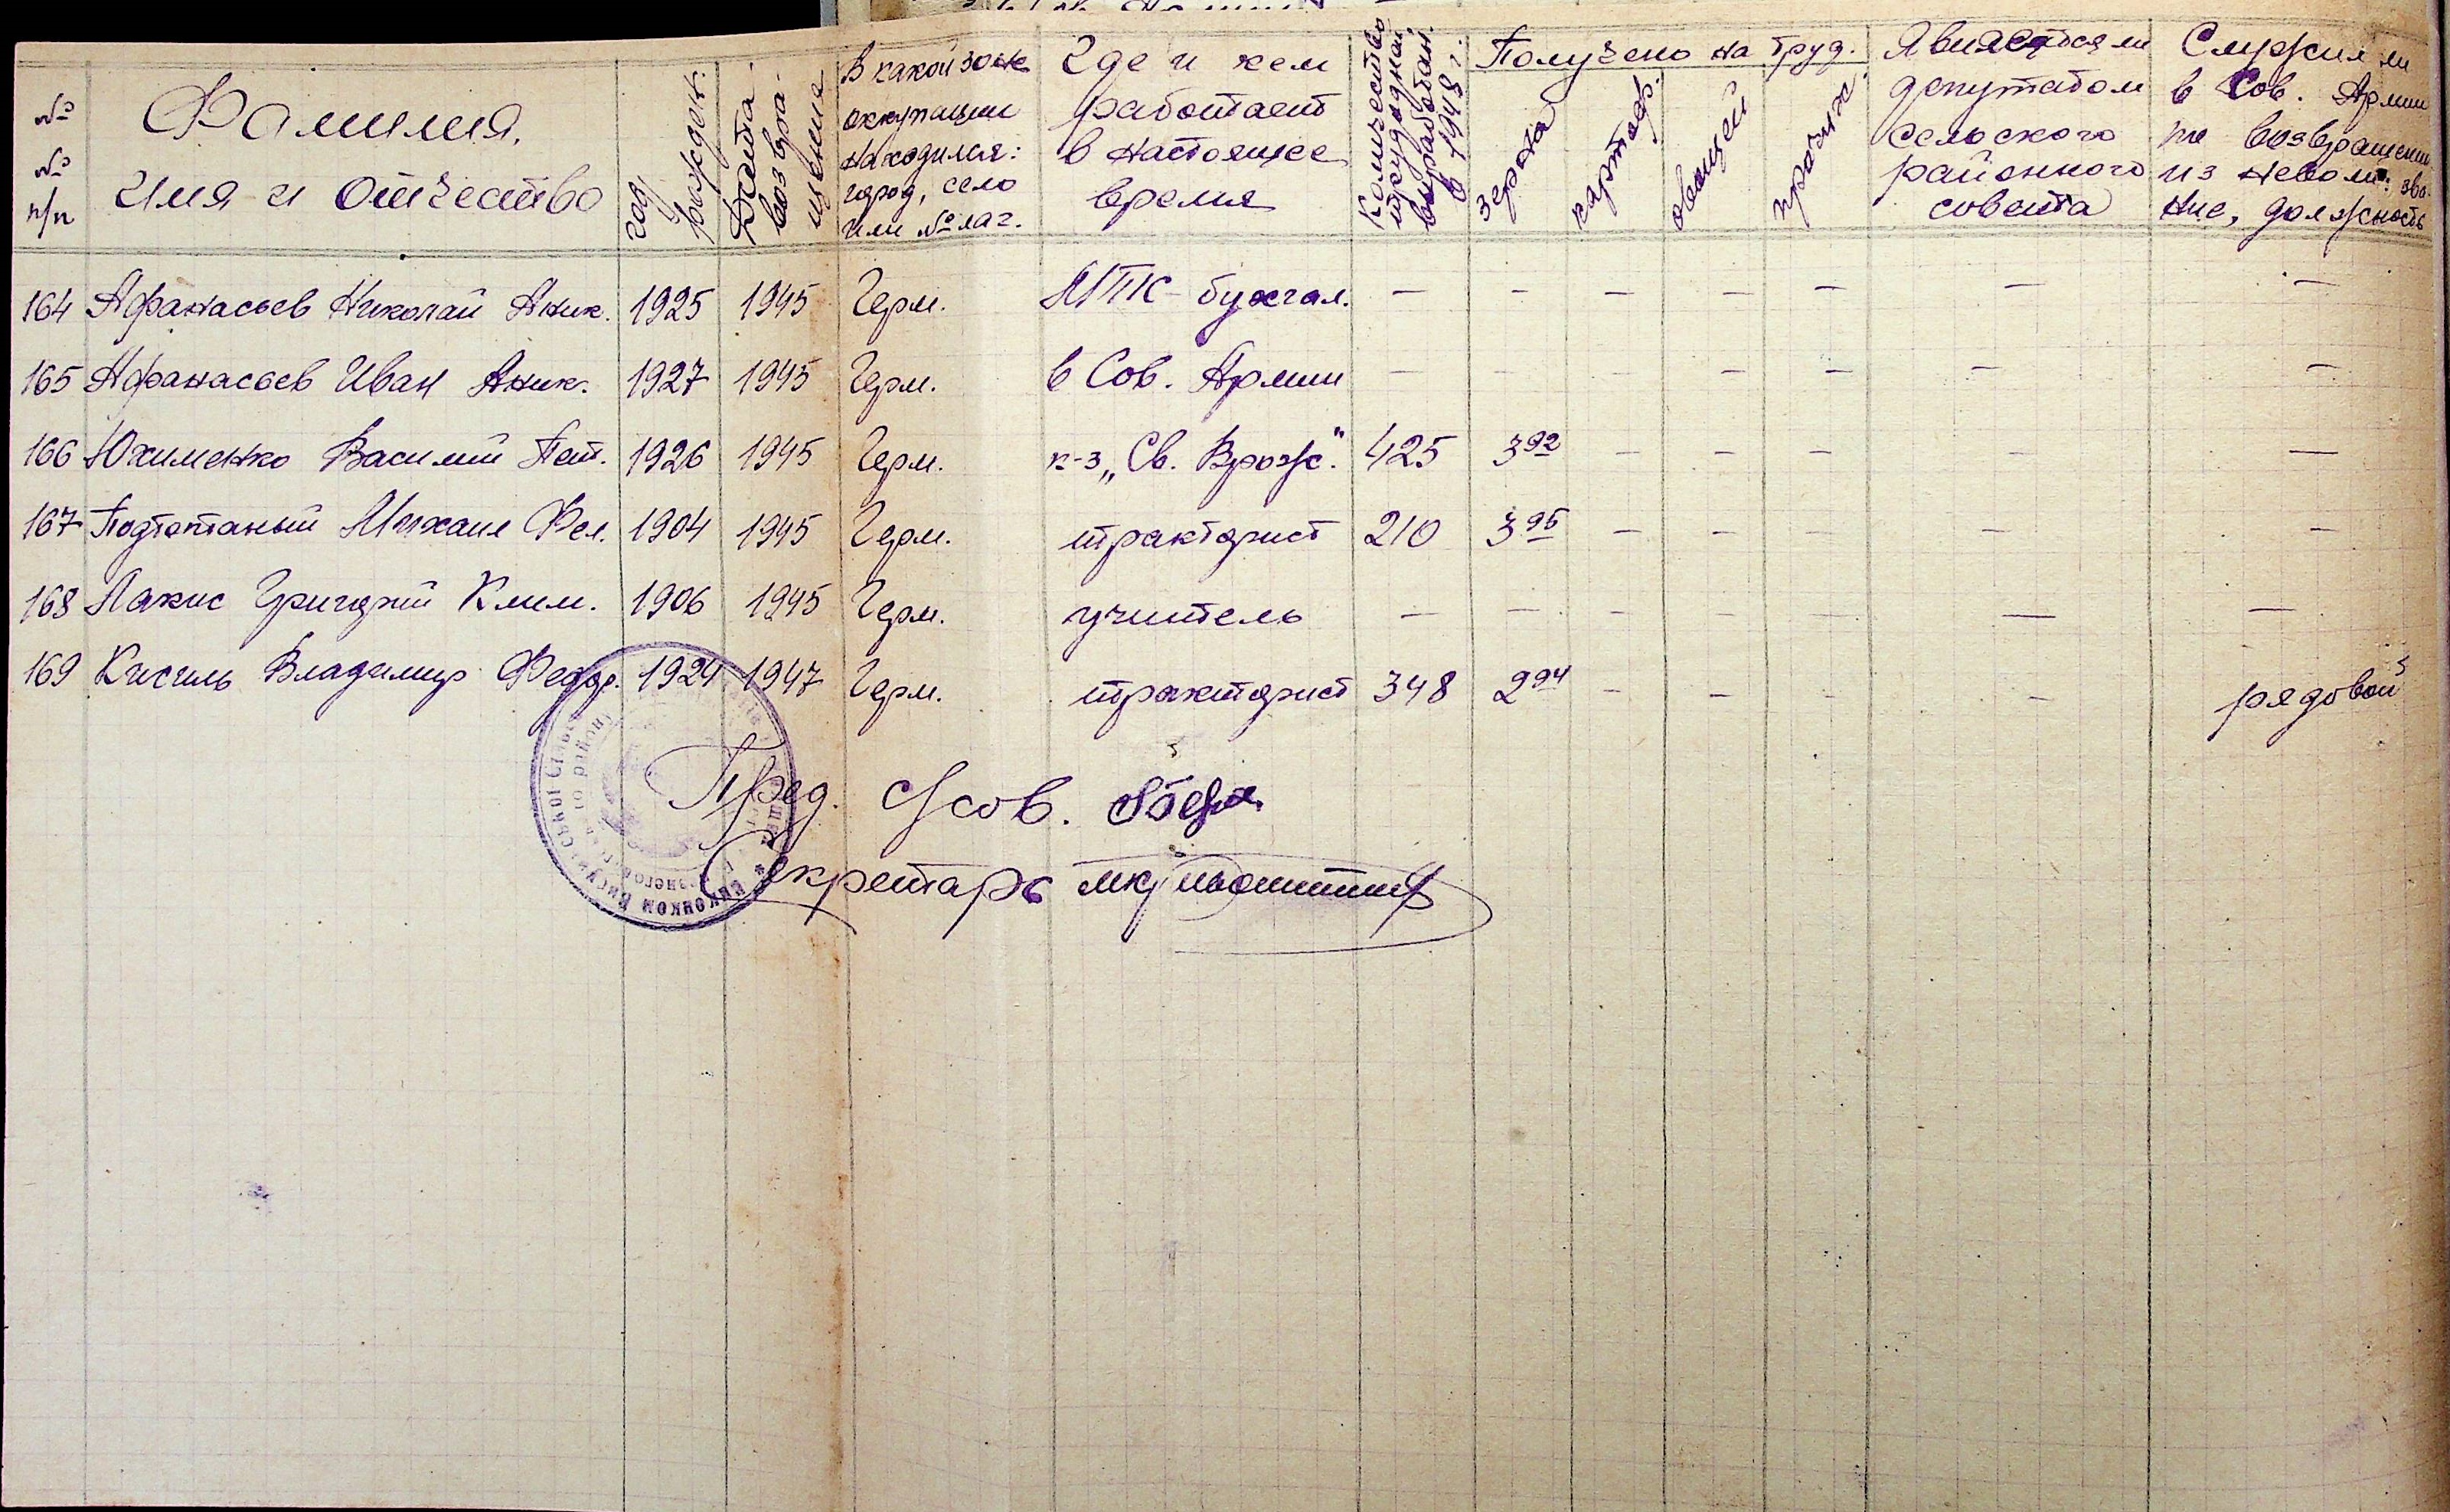 № № п/п
Фамилия, имя и отчество
год рожден.
Дата возвращения
В какой зоне оккупации находился: город, село или № лаг.
Где и кем работает в настоящее время
Количество трудодней выработан. в 1948 г.
Получено на труд.
зерна
картоф.
овощей
Является ли депутатом сельского районного совета
Служил ли в Сов. Армии по возвращении из неволи: звание, должность
164 Афанасьев Николай Аник. 1925 1945 Герм. МТК - бухгал. — — — — — — —
165 Афанасьев Иван Аник. 1927 1945 Герм. в Сов. Армии — — — — — — —
166 Юхименко Василий Пет. 1926 1945 Герм. к-з „Св. Врож". 425 3 92 — — — — —
167 Подтопаный Михаил Фед. 1904 1945 Герм. тракторист 210 3 95 — — — — —
168 Лакис Григорий Клим. 1906 1945 Герм. учитель — — — — — — —
169 Кисиль Владимир Федор. 1924 1947 Герм. тракторист 348 2 94 — — — — рядовой
Пред. с/сов.
Секретарь